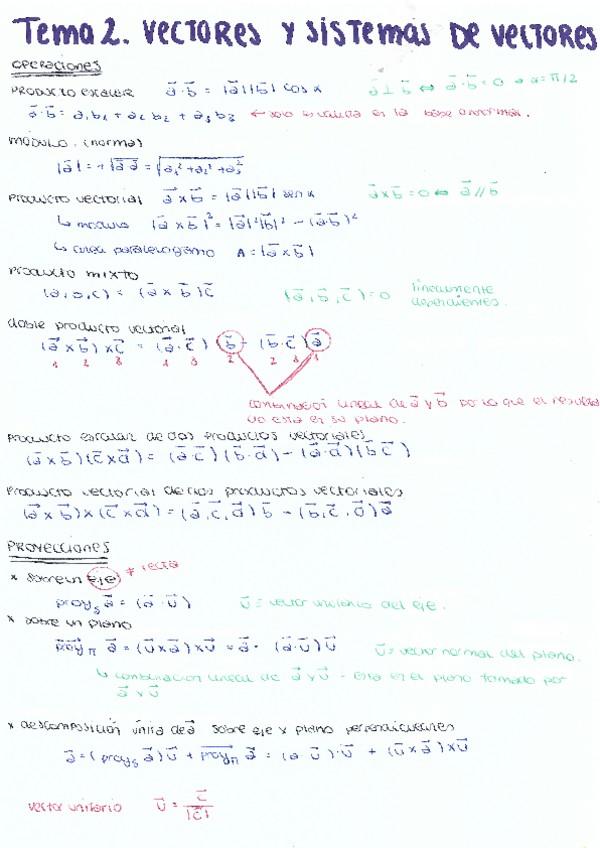 Tema 2. VECTORES Y SISTEMAS DE VECTORES
OPERACIONES
PRODUCTO ESCALAR a⃗·b⃗ = |a⃗||b⃗| cos α a⃗ ⊥ b⃗ ⇔ a⃗·b⃗ = 0 → α = π/2
a⃗·b⃗ = a₁b₁ + a₂b₂ + a₃b₃ ← solo es valida en la base ortonormal.
MÓDULO. (norma)
|a⃗| = +√a⃗ a⃗ = √a₁² + a₂² + a₃²
PRODUCTO VECTORIAL a⃗ × b⃗ = |a⃗||b⃗| sen α a⃗ × b⃗ = 0 ⇔ a⃗ // b⃗
↳ modulo |a⃗ × b⃗|² = |a⃗|²|b⃗|² − (a⃗·b⃗)²
↳ area paralelogramo A = |a⃗ × b⃗|
PRODUCTO MIXTO
(a, b, c) = (a⃗ × b⃗) c⃗ (a⃗, b⃗, c⃗) = 0 linealmente dependientes.
doble producto vectorial
(a⃗ × b⃗) × c⃗ = (a⃗·c⃗) (b⃗ − (b⃗·c⃗) a⃗
1 2 3 1 3 2 2 3 1
combinación lineal de a⃗ y b⃗ por lo que el resulta
do esta en su plano.
Producto escalar de dos productos vectoriales
(a⃗ × b⃗)(c⃗ × d⃗) = (a⃗·c⃗)(b⃗·d⃗) − (a⃗·d⃗)(b⃗ c⃗)
Producto vectorial de dos productos vectoriales
(a⃗ × b⃗) × (c⃗ × d⃗) = (a⃗, c⃗, d⃗) b⃗ − (b⃗, c⃗, d⃗) a⃗
PROYECCIONES
* sobre un eje ≠ recta
proyₛ a⃗ = (a⃗·u⃗) u⃗ = vector unitario del eje.
* sobre un plano
proy_π a⃗ = (u⃗ × a⃗) × u⃗ = a⃗ − (a⃗·u⃗) u⃗ u⃗ = vector normal del plano.
↳ combinacion lineal de a⃗ y u⃗ − esta en el plano formado por
a⃗ y u⃗
* descomposición única de a⃗ sobre eje y plano perpendiculares
a⃗ = (proyₛ a⃗) u⃗ + proy_π a⃗ = (a u⃗)·u⃗ + (u⃗ × a⃗) × u⃗
vector unitario u⃗ = c⃗/|c⃗|